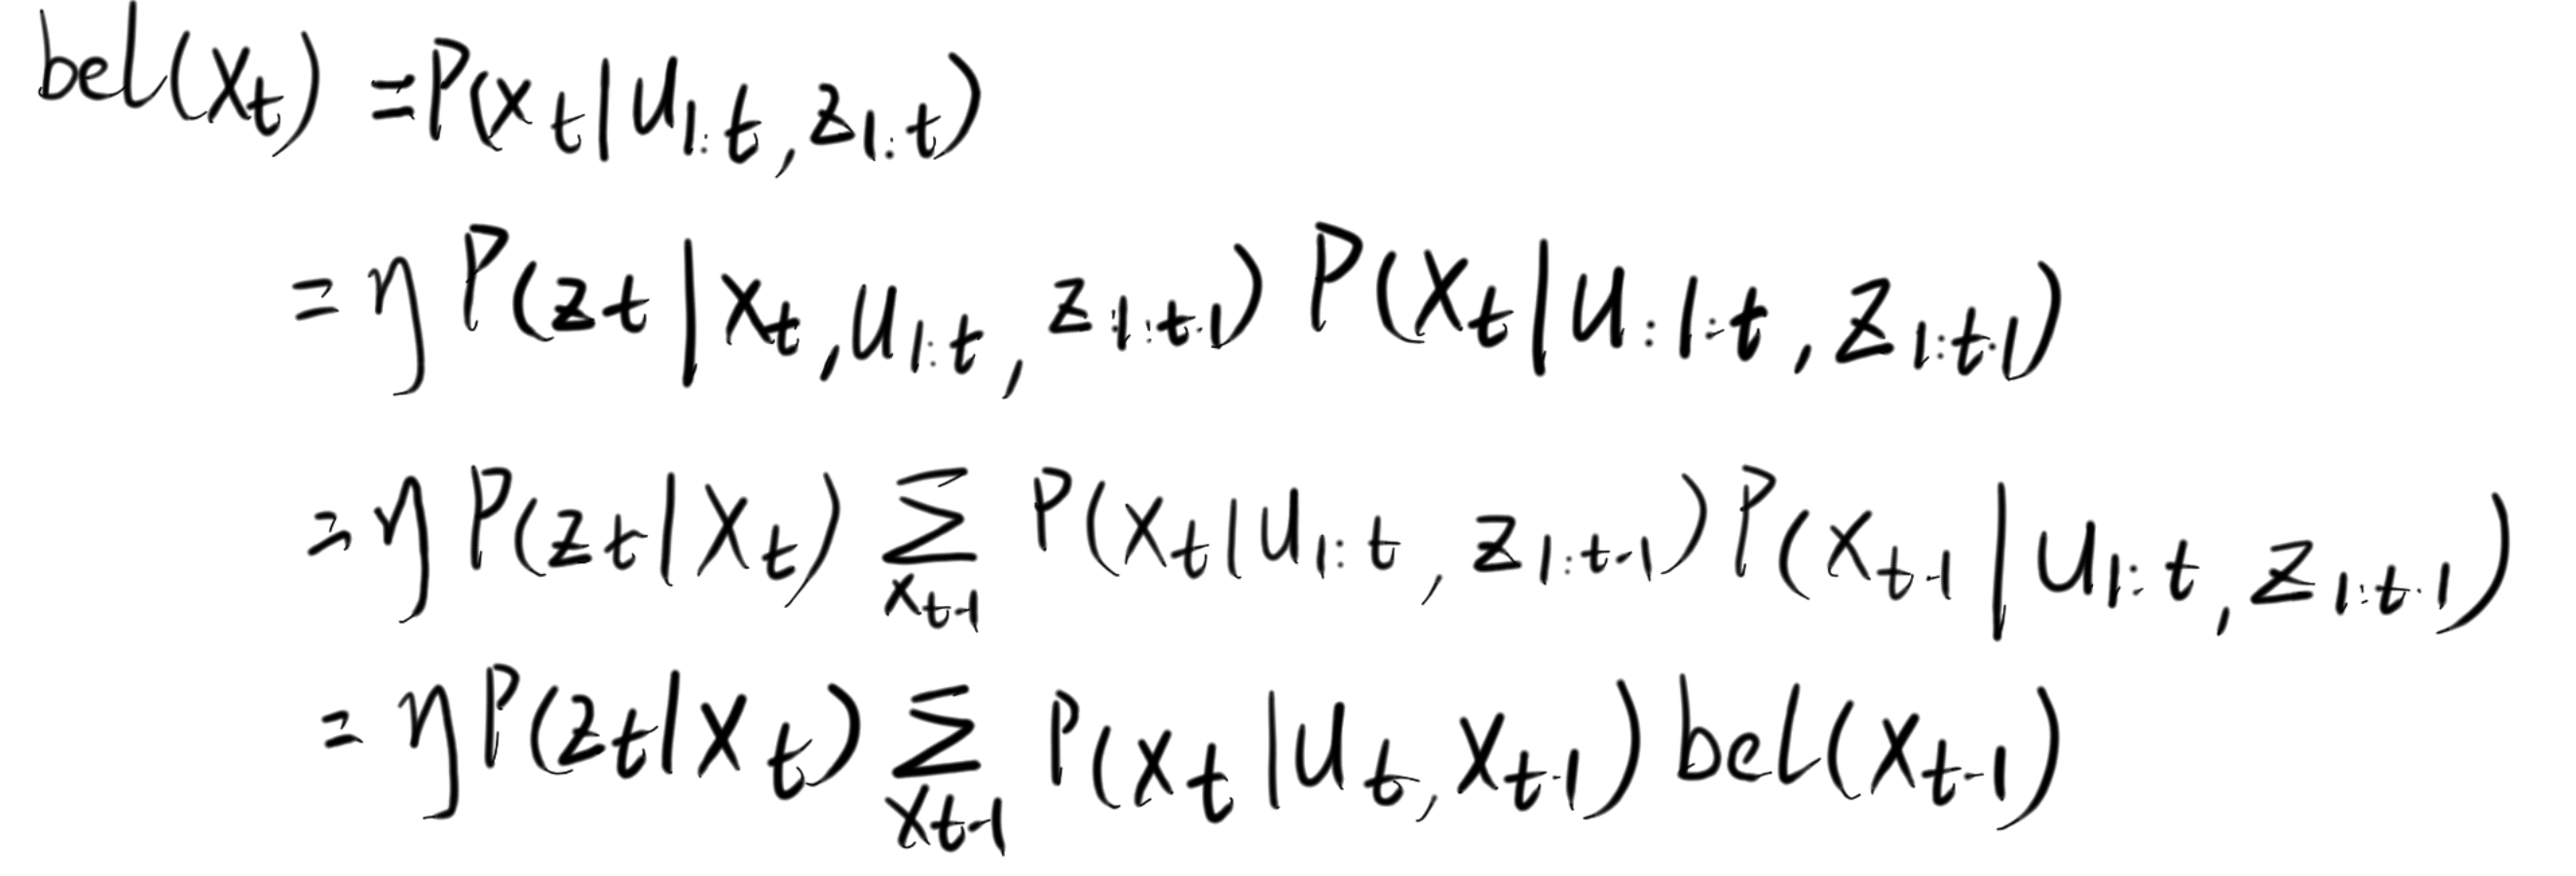 bel(x_t) = P(x_t | u_{1:t}, z_{1:t})
= η P(z_t | x_t, u_{1:t}, z_{1:t-1}) P(x_t | u_{:1:t}, z_{1:t-1})
= η P(z_t | x_t) Σ_{x_{t-1}} P(x_t | u_{1:t}, z_{1:t-1}) P(x_{t-1} | u_{1:t}, z_{1:t-1})
= η P(z_t | x_t) Σ_{x_{t-1}} P(x_t | u_t, x_{t-1}) bel(x_{t-1})